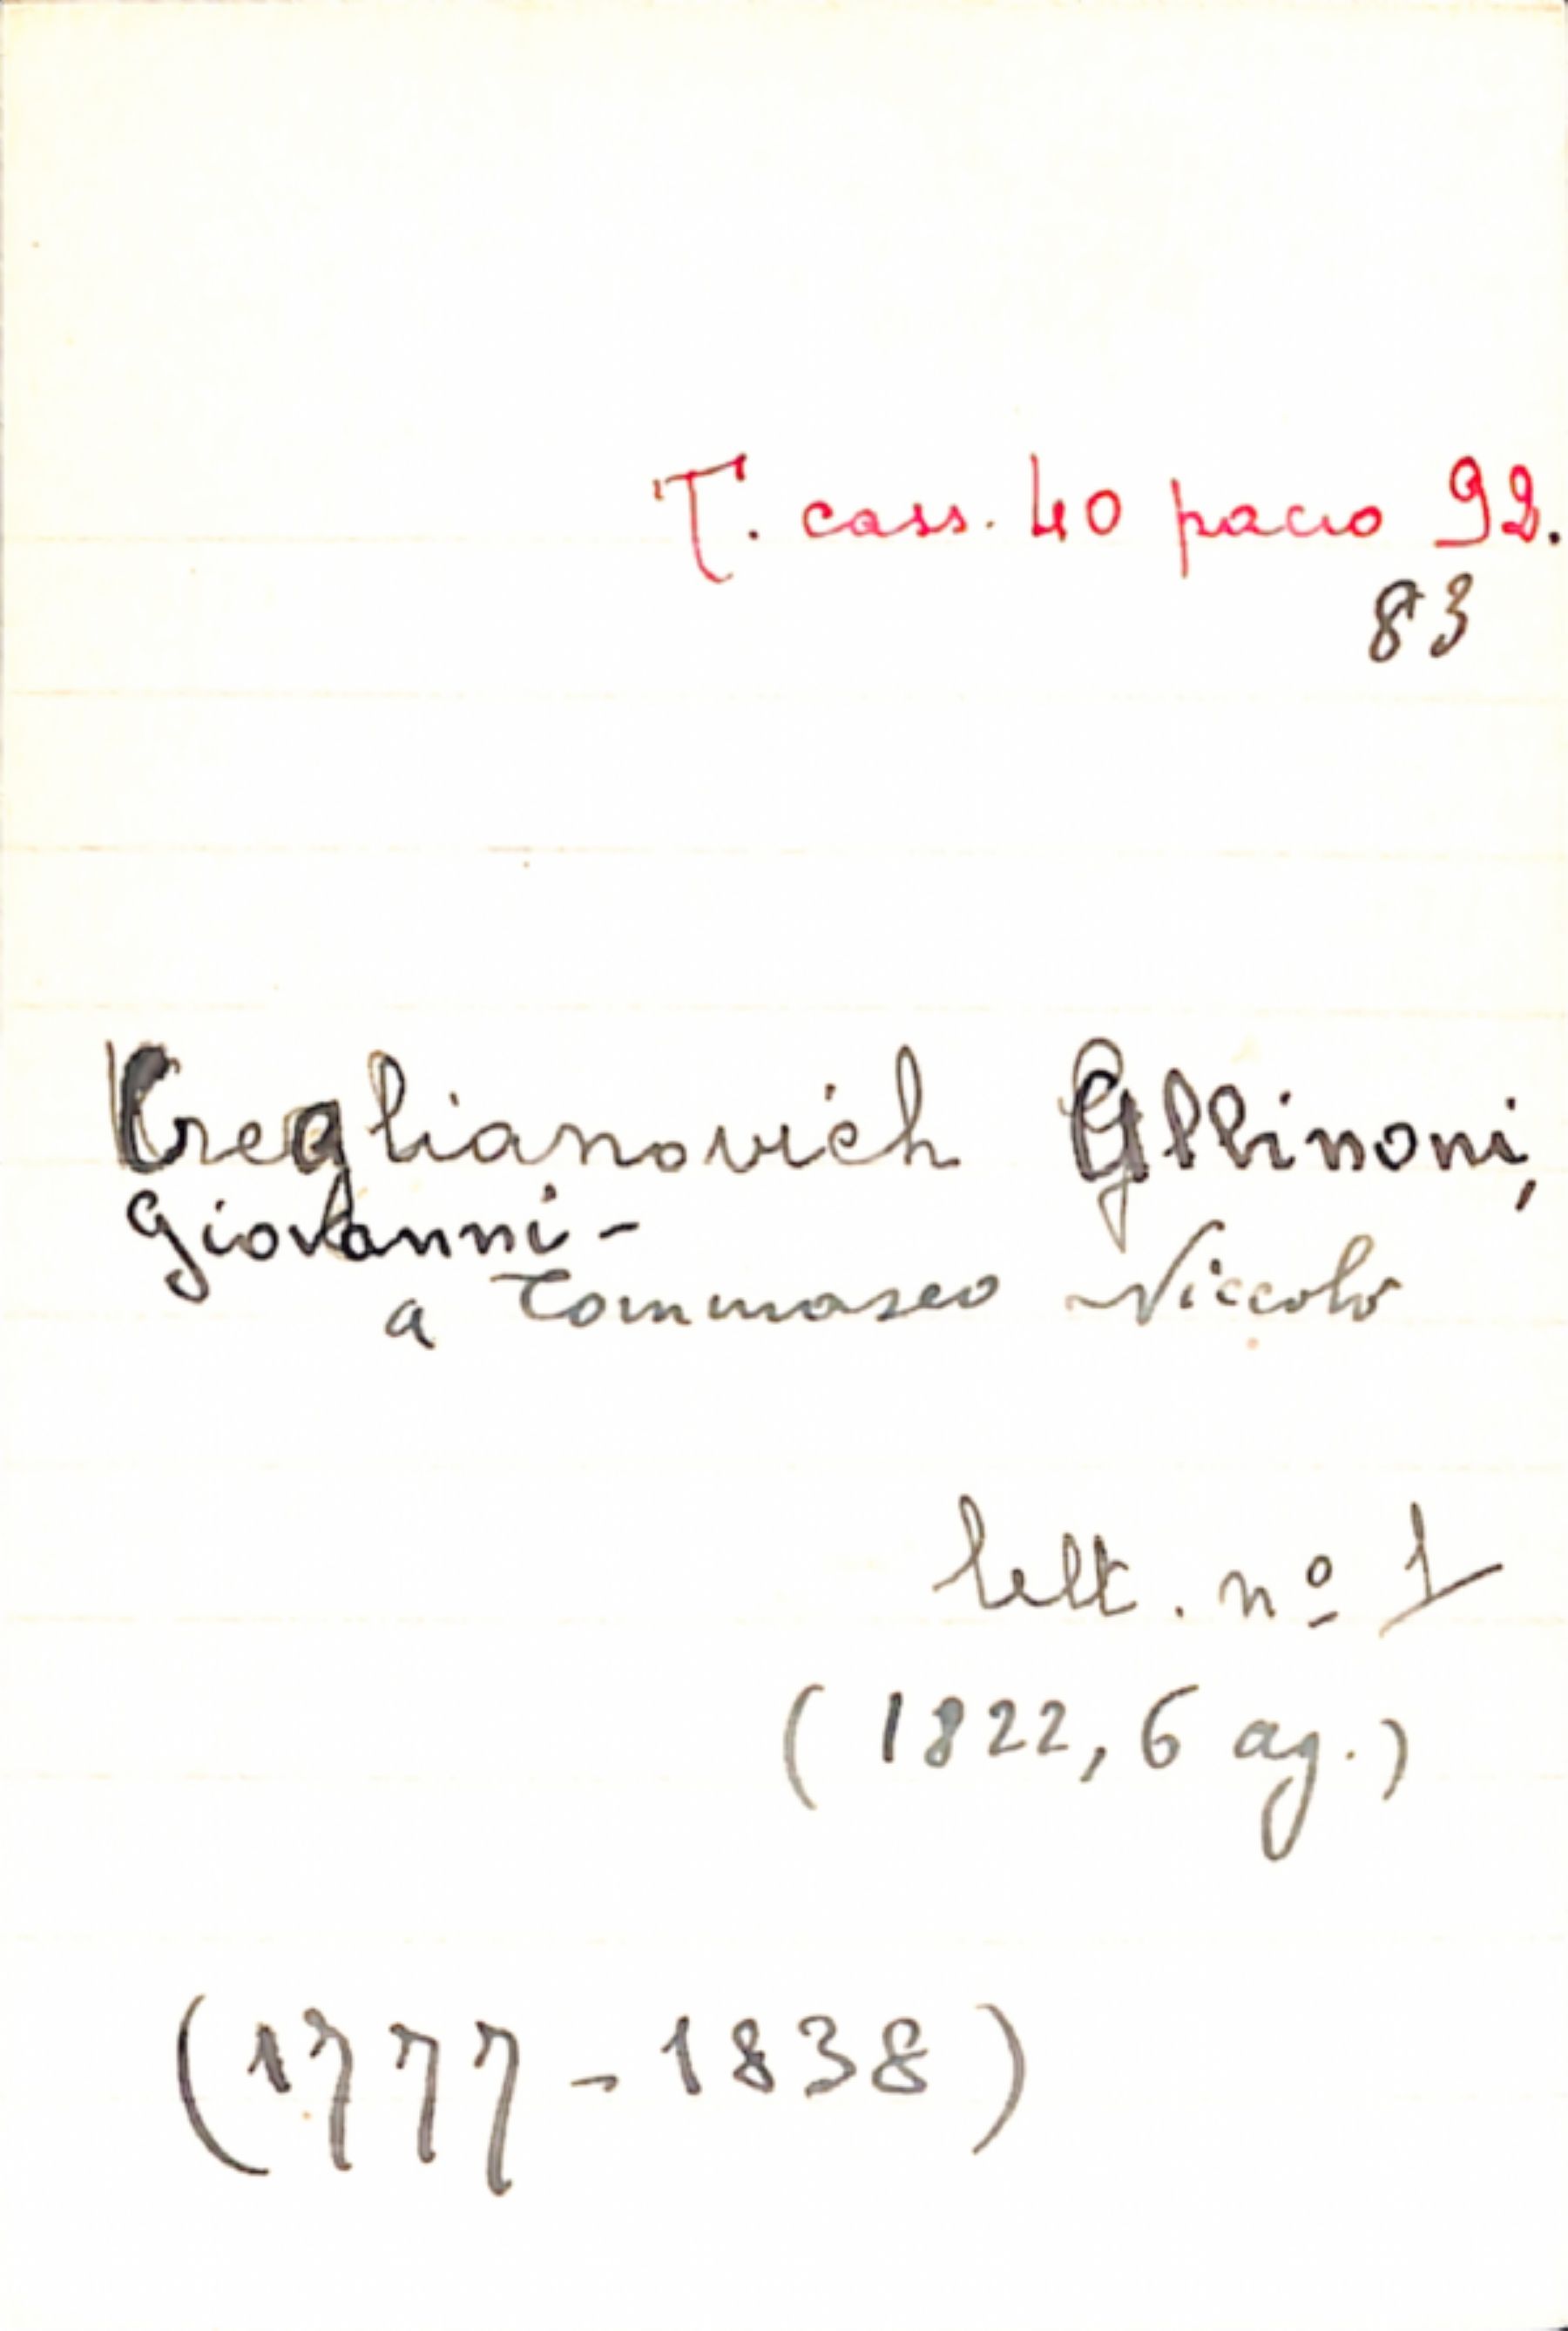 T. cass. 40 pacco 92.
83
Kreglianovich Albinoni,
Giovanni -
a Tommaseo Niccolò
lett. nº 1
(1822, 6 ag.)
(1777 - 1838)